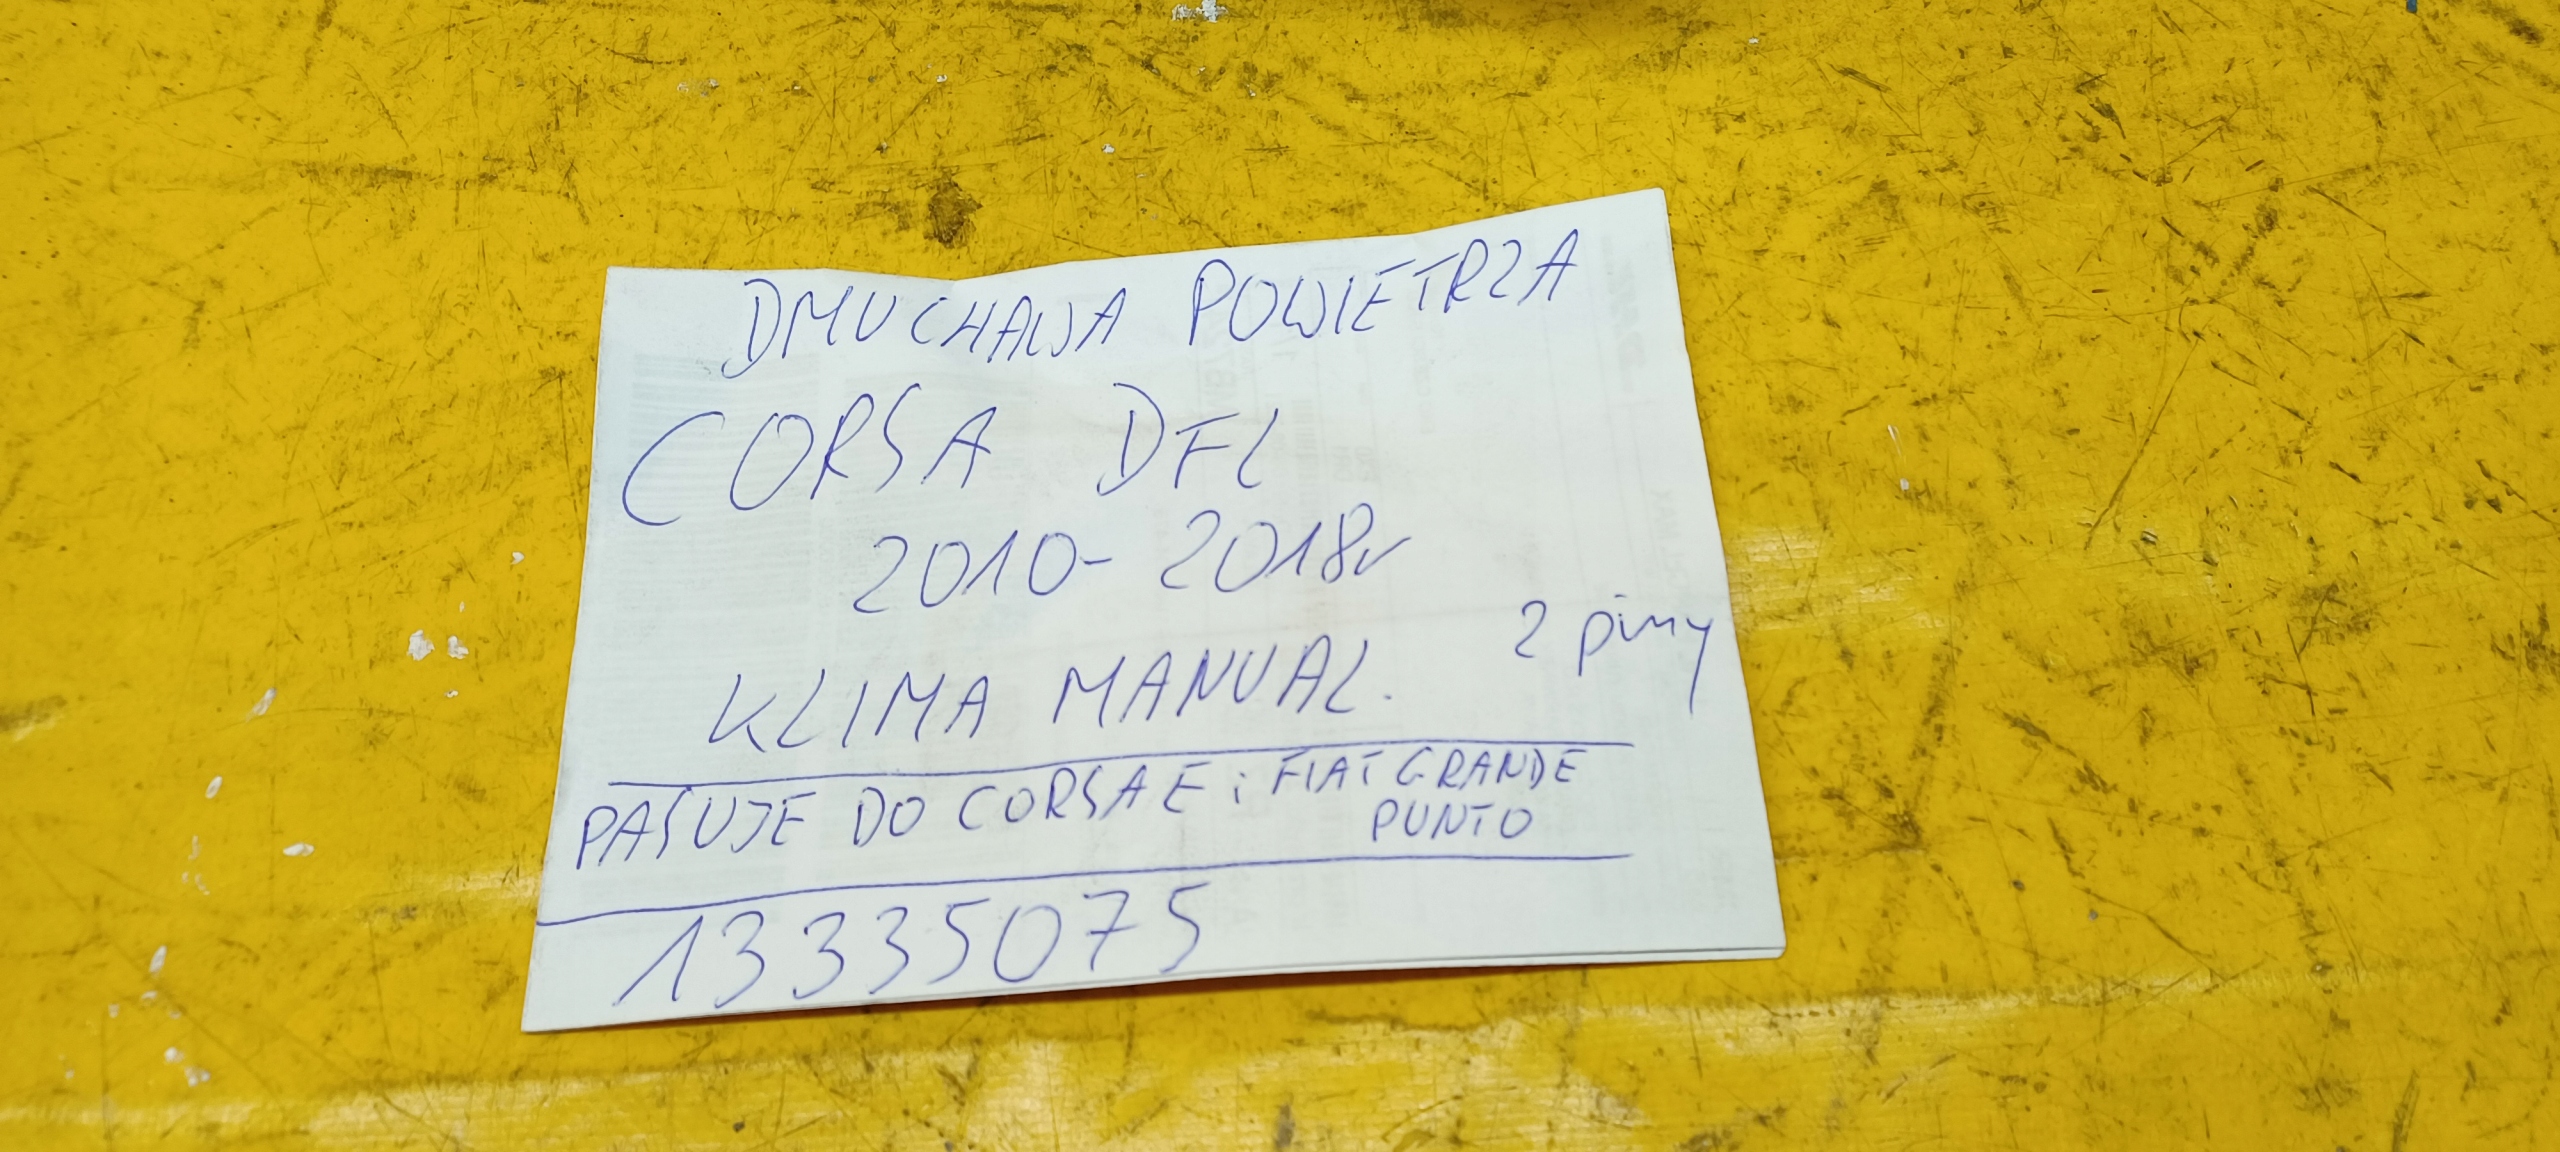 DMUCHAWA POWIETRZA
CORSA DFL
2010-2018r
2 piny
KLIMA MANUAL.
PASUJE DO CORSA E i FIAT GRANDE
PUNTO
13335075